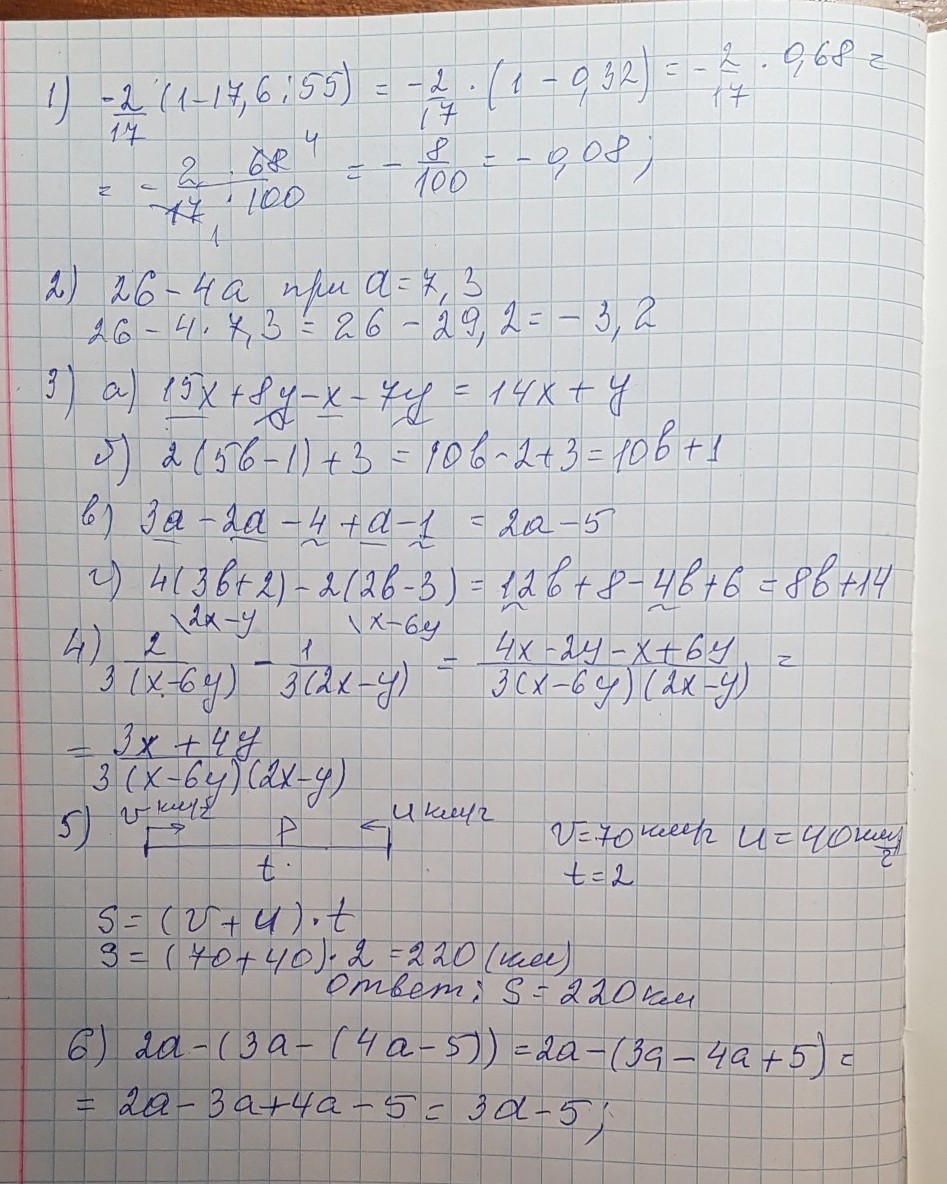 1) -2/17 · (1-17,6:55) = -2/17 · (1-0,32) = -2/17 · 0,68 =
= - 2·68 4 / 17·100 1 = - 8/100 = -0,08;
2) 26-4a при a=7,3
26-4·7,3=26-29,2=-3,2
3) а) 15x+8y-x-7y = 14x+y
б) 2(5b-1)+3 = 10b-2+3=10b+1
в) 3a-2a-4+a-1 = 2a-5
г) 4(3b+2)-2(2b-3) = 12b+8-4b+6 = 8b+14
4) 2/3(x-6y) \2x-y - 1/3(2x-y) \x-6y = 4x-2y-x+6y/3(x-6y)(2x-y) =
= 3x+4y/3(x-6y)(2x-y)
5) v км/г P u км/г
t
v=70 км/г u=40 км/г
t=2
S=(v+u)·t
S=(70+40)·2=220 (км)
Ответ: S=220 км
6) 2a-(3a-(4a-5))=2a-(3a-4a+5)=
= 2a-3a+4a-5= 3a-5;